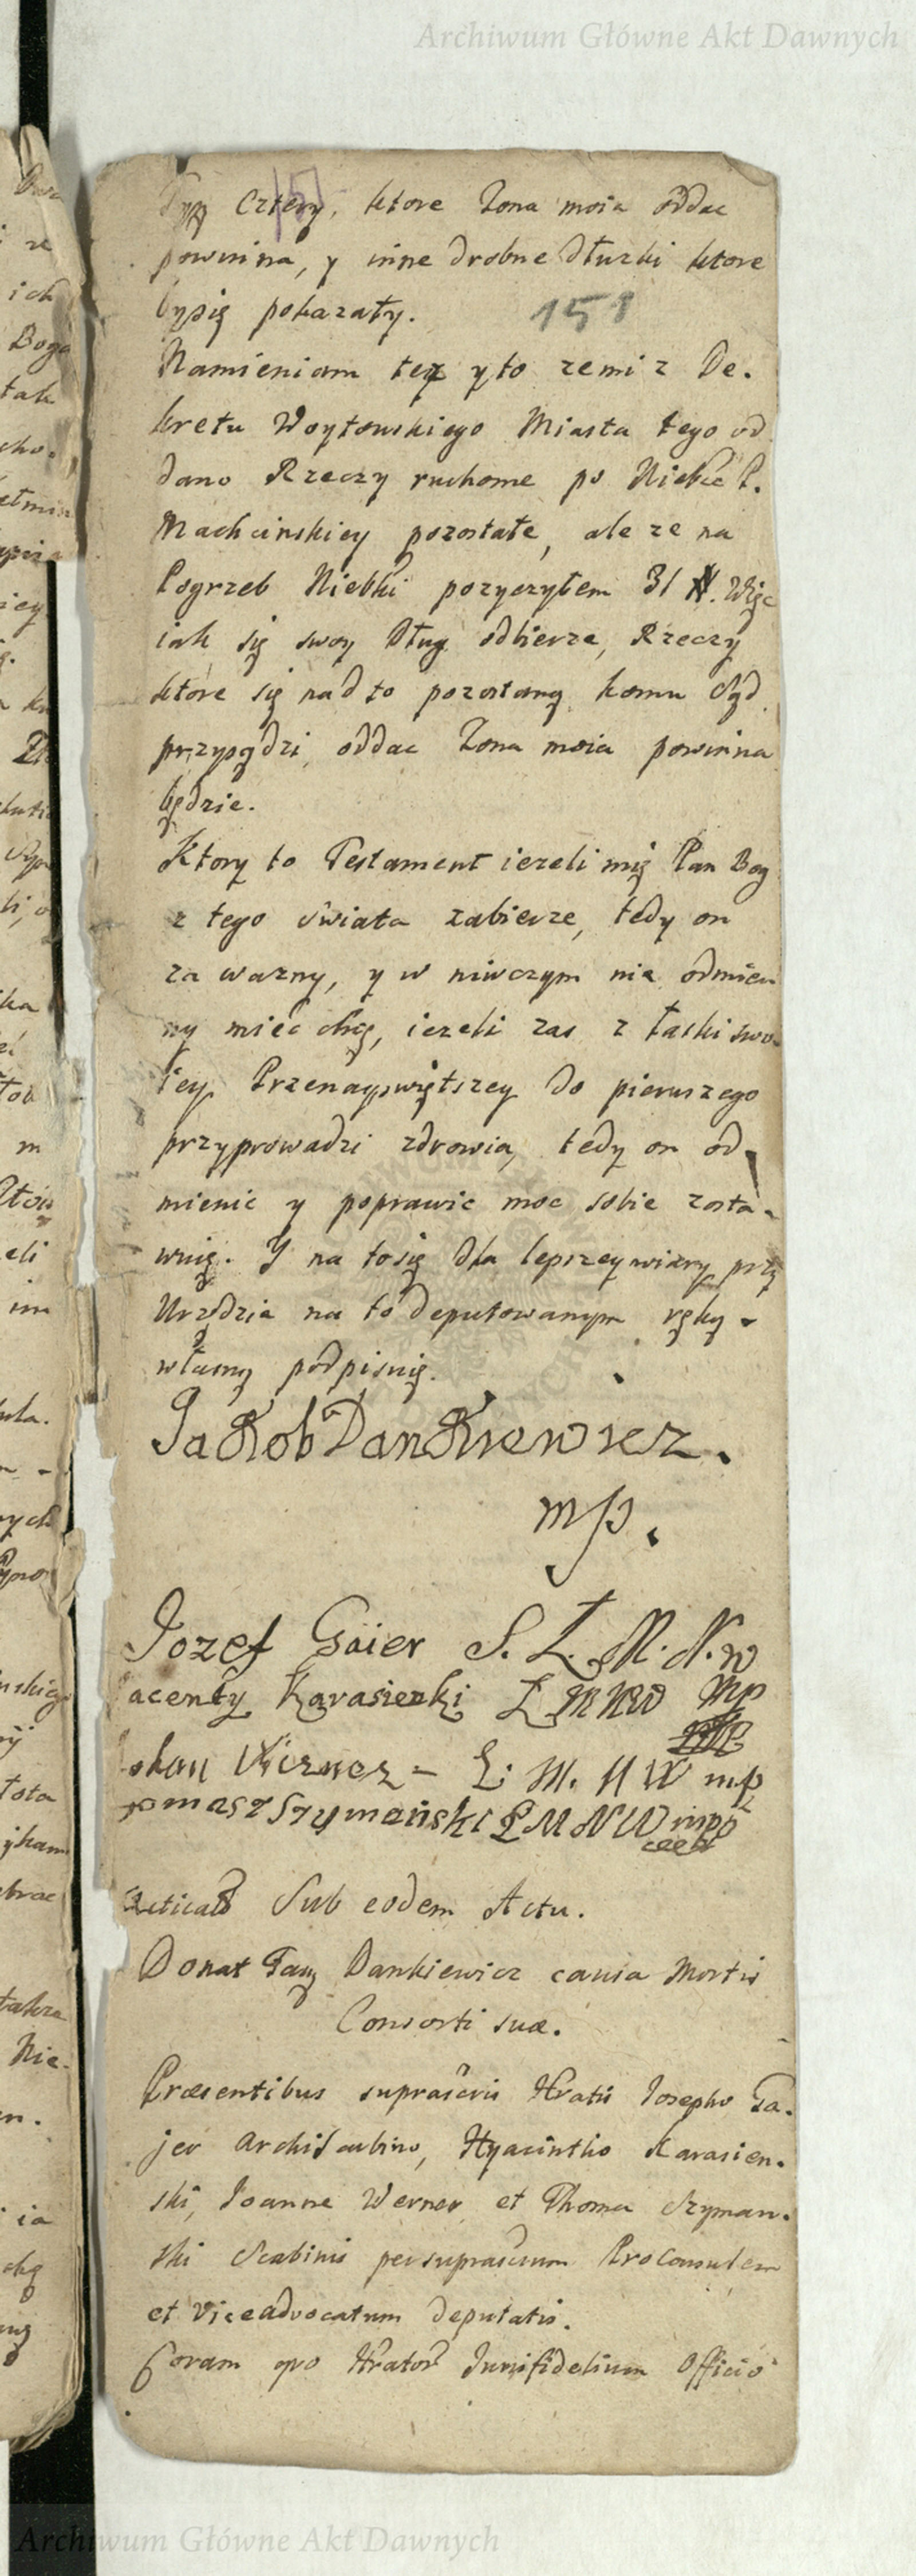 Archiwum Główne Akt Dawnych
Cztery, ktore Zona moia oddac
powinna, y inne drobne dłuzki ktore
bysię pokazały.
151
Namieniam tez yto zemi z De.
kretu Woytowskiego Miasta tego od
dano Rzeczy ruchome po Niebće P.
Machcinskiey pozostałe, ale ze na
Pogrzeb Niebki pozyczyłem 31 Więc
iak się swoy Dług odbierze, Rzeczy
ktore się nad to pozostaną komu Sąd
przysądzi, oddac Zona moia powinna
będzie.
Ktory to Testament iezeli mię Pan Bog
z tego Swiata zabierze, tedy on
za wazny, y w niwczym nie odmien
ny mieć chcę, iezeli zas z łaski swo-
iey Przenayswiętszey do pierwszego
przyprowadzi zdrowia, tedy on od-
mienic y poprawic moc sobie zosta-
wuię. Y na tosię dla lepszey wiary przy
Urzędzie na to deputowanym ręką
własną podpisuię.
Jakob Dankiewicz.
mp.
Jozef Gaier S. Ł. M. N. W
acenty Karasienki Ł M N W Mp
ohan Werner - Ł. M. N W mp
omasz Szymański Ł M N W mpp
Acticatō Sub eodem Actu.
Donat Famą Dankiewicz causa Mortis
Consorti suæ.
Præsentibus suprascris Hratis Josepho Ga-
jer Archiscabino, Hyacintho Karasien-
ski, Joanne Werner et Thoma Szyman-
ski Scabinis per suprascrum ProConsulem
et Viceadvocatum deputatis.
Coram qvo Hrator Jurisfidelium Officio
Archiwum Główne Akt Dawnych